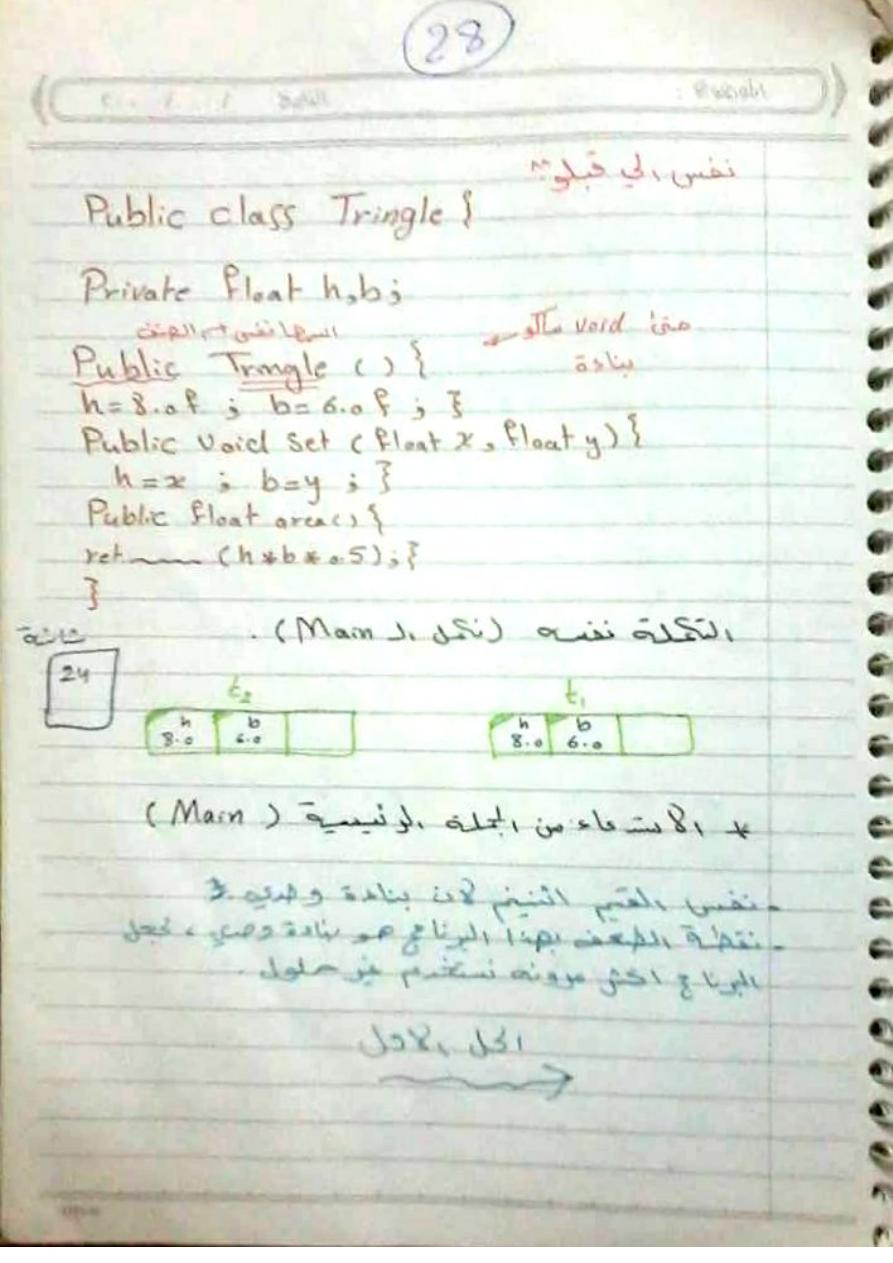 28
نفس الي قبلو ^^
Public class Tringle {
Private float h,b;
اسمها نفس اسم الصنف
حتى void ماكو
بنادة
Public Tringle () {
h=8.0f ; b=6.0f ; }
Public void Set (float x, float y) {
h=x ; b=y ; }
Public float area() {
ret (h*b*0.5); }
}
التكملة نفسه (نكمل الـ Main) .
شاشة
24
t2
t1
h b
8.0 6.0
h b
8.0 6.0
* الاستدعاء من الجملة الرئيسية (Main)
- نفس القيم اثنينهم لان بنادة وحدة.
- نقطة الضعف بهذا البرنامج هو بنادة وحدة ، نجعل
البرنامج اكثر مرونه نستخدم غير حلول .
الحل الاول